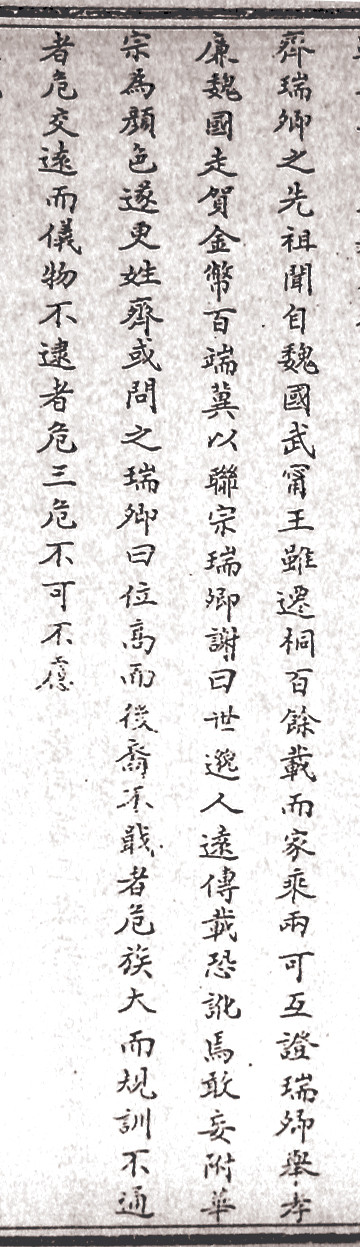 齊瑞卿之先祖聞自魏國武甯王雖遷桐百餘載而家乘兩可互證瑞卿舉孝
廉魏國走賀金幣百端冀以聯宗瑞卿謝曰世邈人遠傳載恐訛焉敢妄附華
宗為顏色遂更姓齊或問之瑞卿曰位高而後裔不戢者危族大而規訓不通
者危交遠而儀物不逮者危三危不可不慮